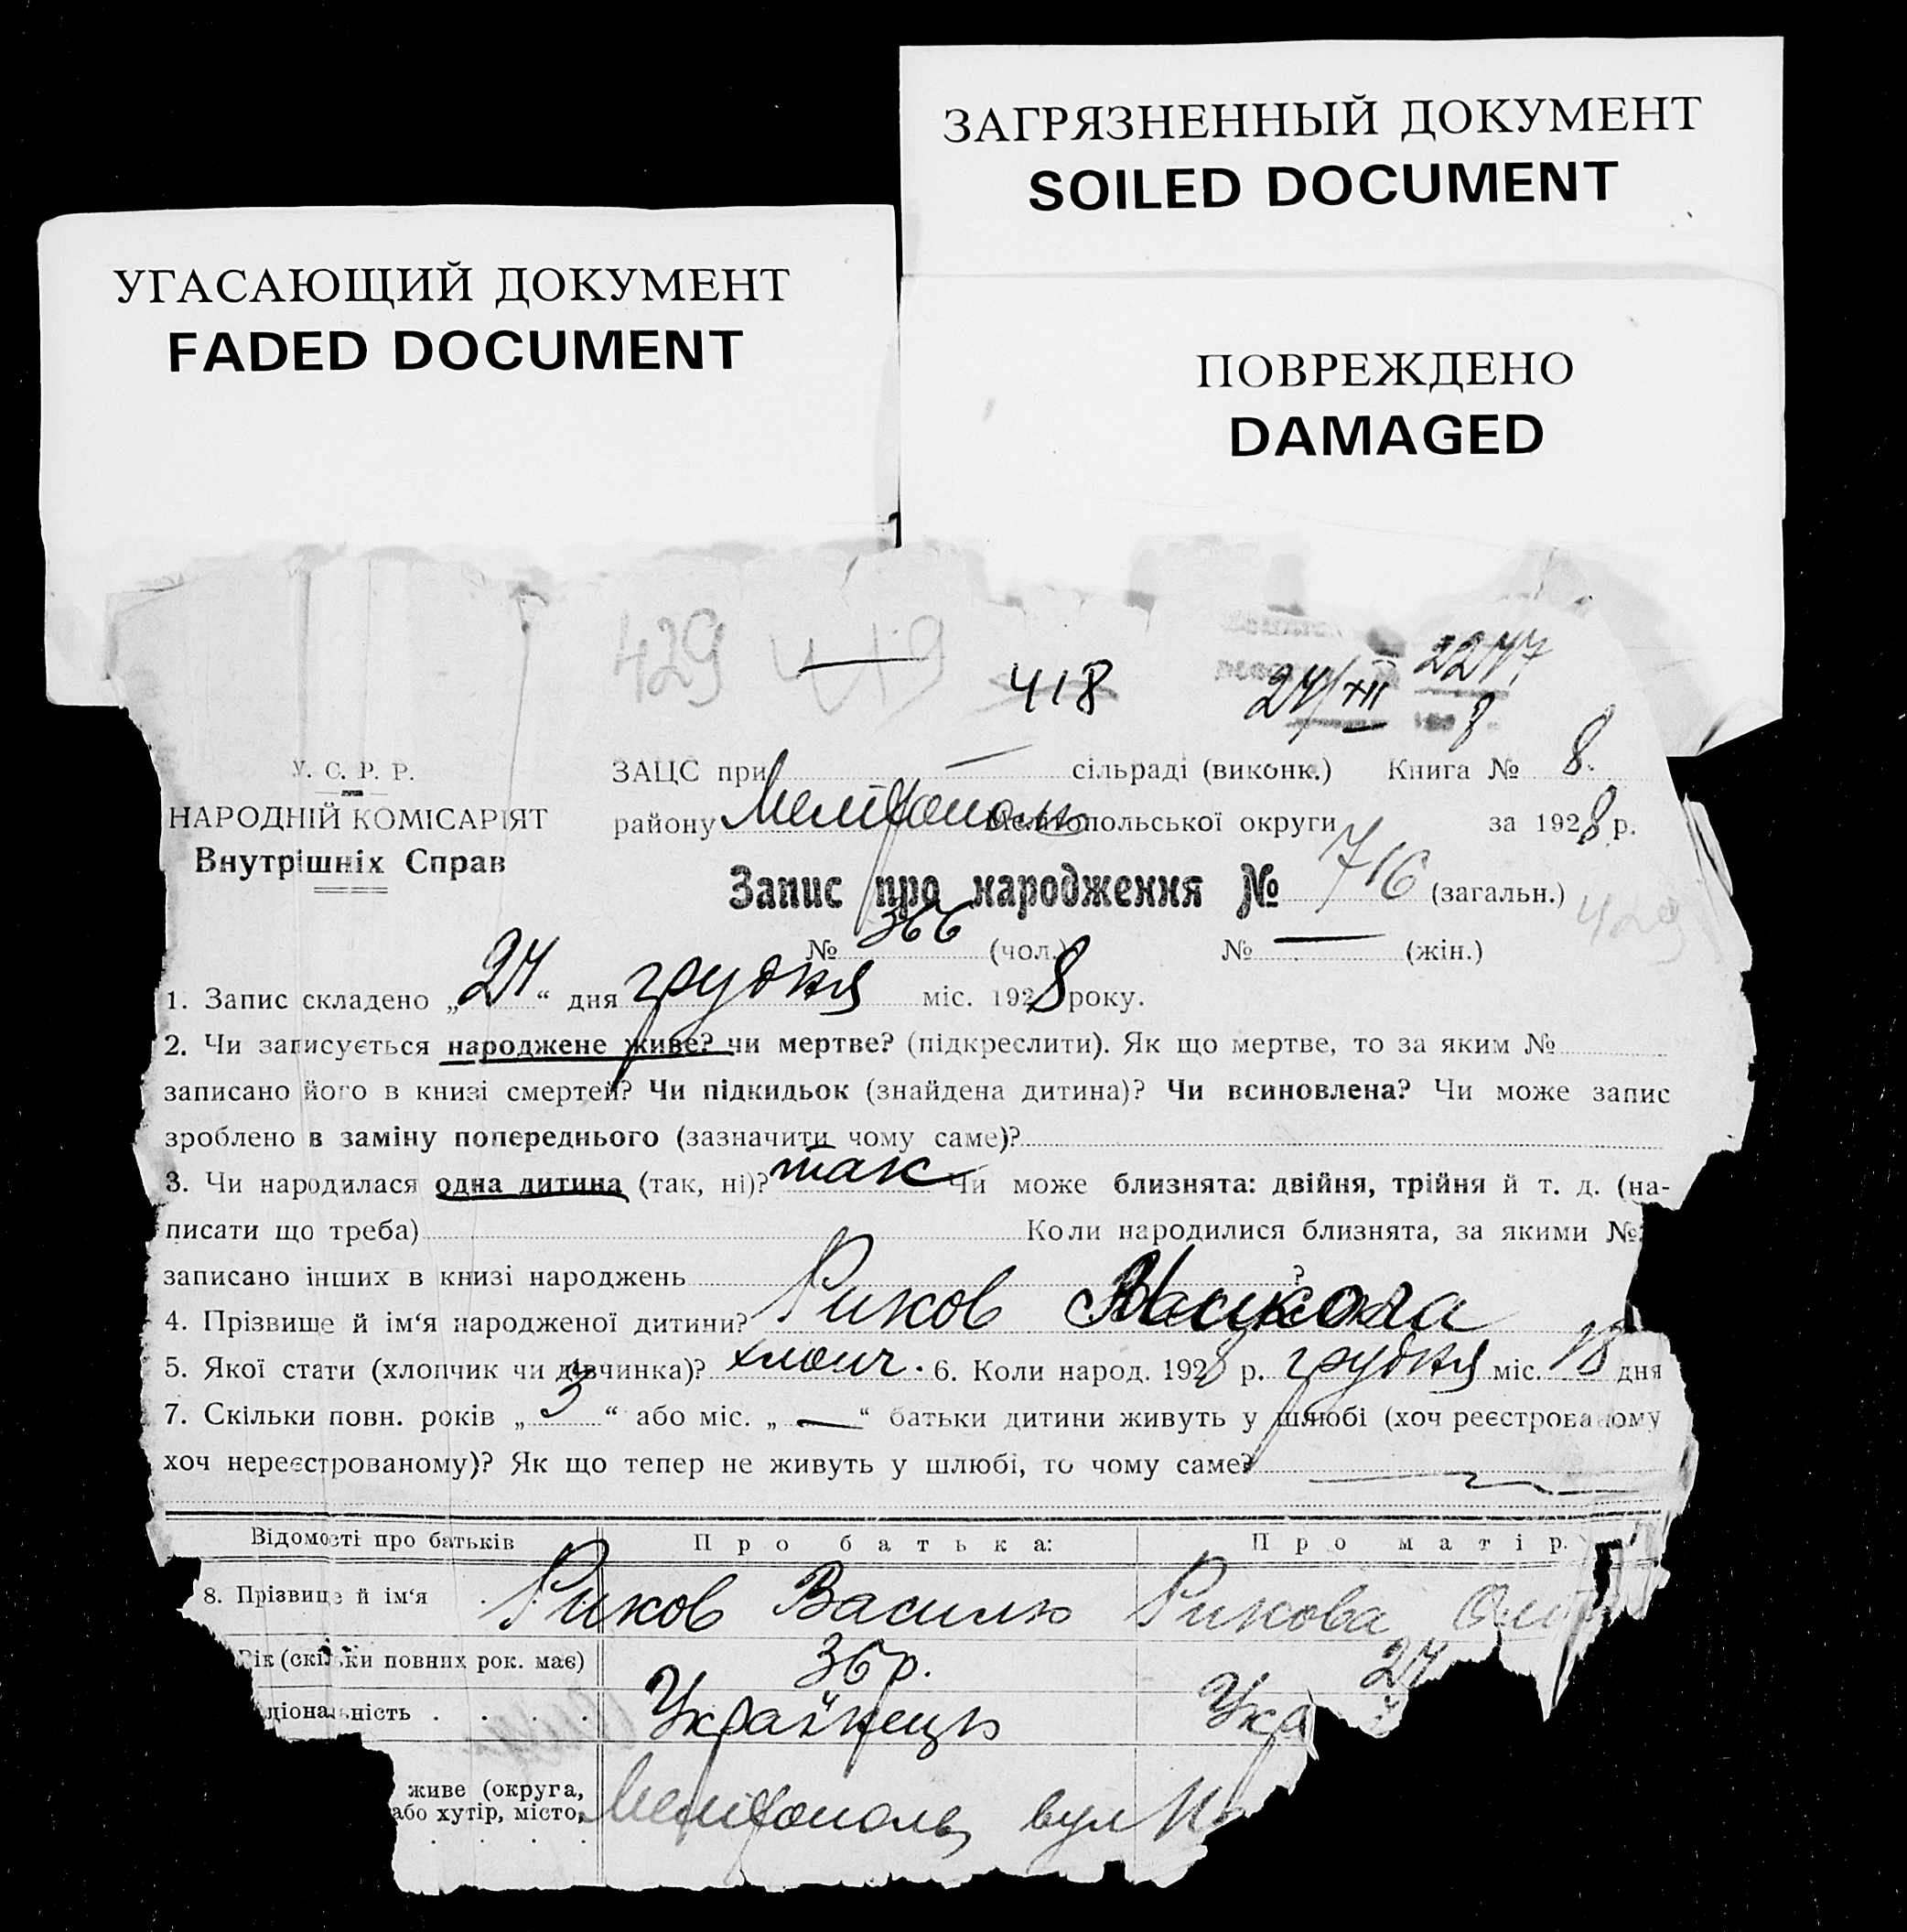 ЗАГРЯЗНЕННЫЙ ДОКУМЕНТ
SOILED DOCUMENT
УГАСАЮЩИЙ ДОКУМЕНТ
FADED DOCUMENT
ПОВРЕЖДЕНО
DAMAGED
429 419 418 24/XII 2247
8
У. С. Р. Р.
НАРОДНІЙ КОМІСАРІЯТ
Внутрішніх Справ
ЗАЦС при — сільраді (виконк.) Книга № 8.
району Мелітополь Мелітопольської округи за 1928 р.
Запис про народження № 716 (загальн.) 429
№ 366 (чол.) № — (жін.)
1. Запис складено „24“ дня грудня міс. 1928 року.
2. Чи записується народжене живе? чи мертве? (підкреслити). Як що мертве, то за яким №
записано його в книзі смертей? Чи підкидьок (знайдена дитина)? Чи всиновлена? Чи може запис
зроблено в заміну попереднього (зазначити чому саме)?
3. Чи народилася одна дитина (так, ні)? так Чи може близнята: двійня, трійня й т. д. (на-
писати що треба) Коли народилися близнята, за якими №
записано інших в книзі народжень ?
4. Прізвище й ім‘я народженої дитини? Риков Микола
5. Якої стати (хлопчик чи дівчинка)? хлопч. 6. Коли народ. 1928 р. грудня міс. 18 дня
7. Скільки повн. років „3“ або міс. „—“ батьки дитини живуть у шлюбі (хоч реєстрованому
хоч нереєстрованому)? Як що тепер не живуть у шлюбі, то чому саме?
Відомості про батьків Про батька: Про матір.
8. Прізвище й ім‘я . Риков Василь Рикова
Рік (скільки повних рок. має) 36 р. 27
ціональність . . . . Українець Укра
живе (округа,
або хутір, місто, Мелітополь вул
. . . .